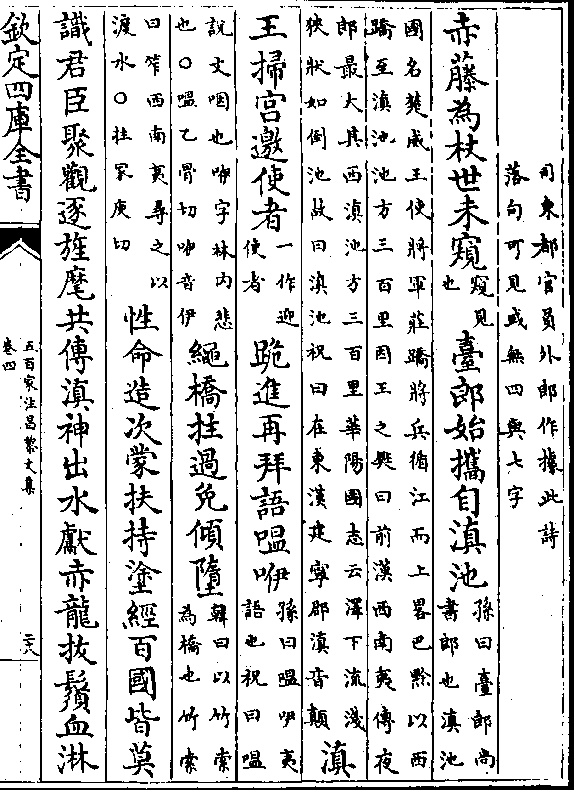 司東都官員外郎作據此詩
落句可見或無四與七字
赤藤為杖世未窺窺見也臺郎始攜自滇池孫曰臺郎尚書郎也滇池
國名楚威王使將軍莊蹻將兵循江而上畧巴黔以西
蹻至滇池池方三百里因王之樊曰前漢西南夷傳夜
郎最大其西滇池方三百里華陽國志云澤下流淺
狹狀如倒池故曰滇池祝曰在東漢建寧郡滇音顛滇
王掃宮邀使者一作迎使者跪進再拜語嗢咿孫曰嗢咿夷語也祝曰嗢
說文咽也咿字林内悲也○嗢乙骨切咿音伊繩橋拄過免傾墮韓曰以竹索為橋也竹索
曰筰西南夷尋之以渡水○拄冢庾切性命造次蒙扶持塗經百國皆莫
識君臣聚觀逐旌麾共傳滇神出水獻赤龍拔鬚血淋
欽定四庫全書
五百家注昌黎文集
卷四
二十八